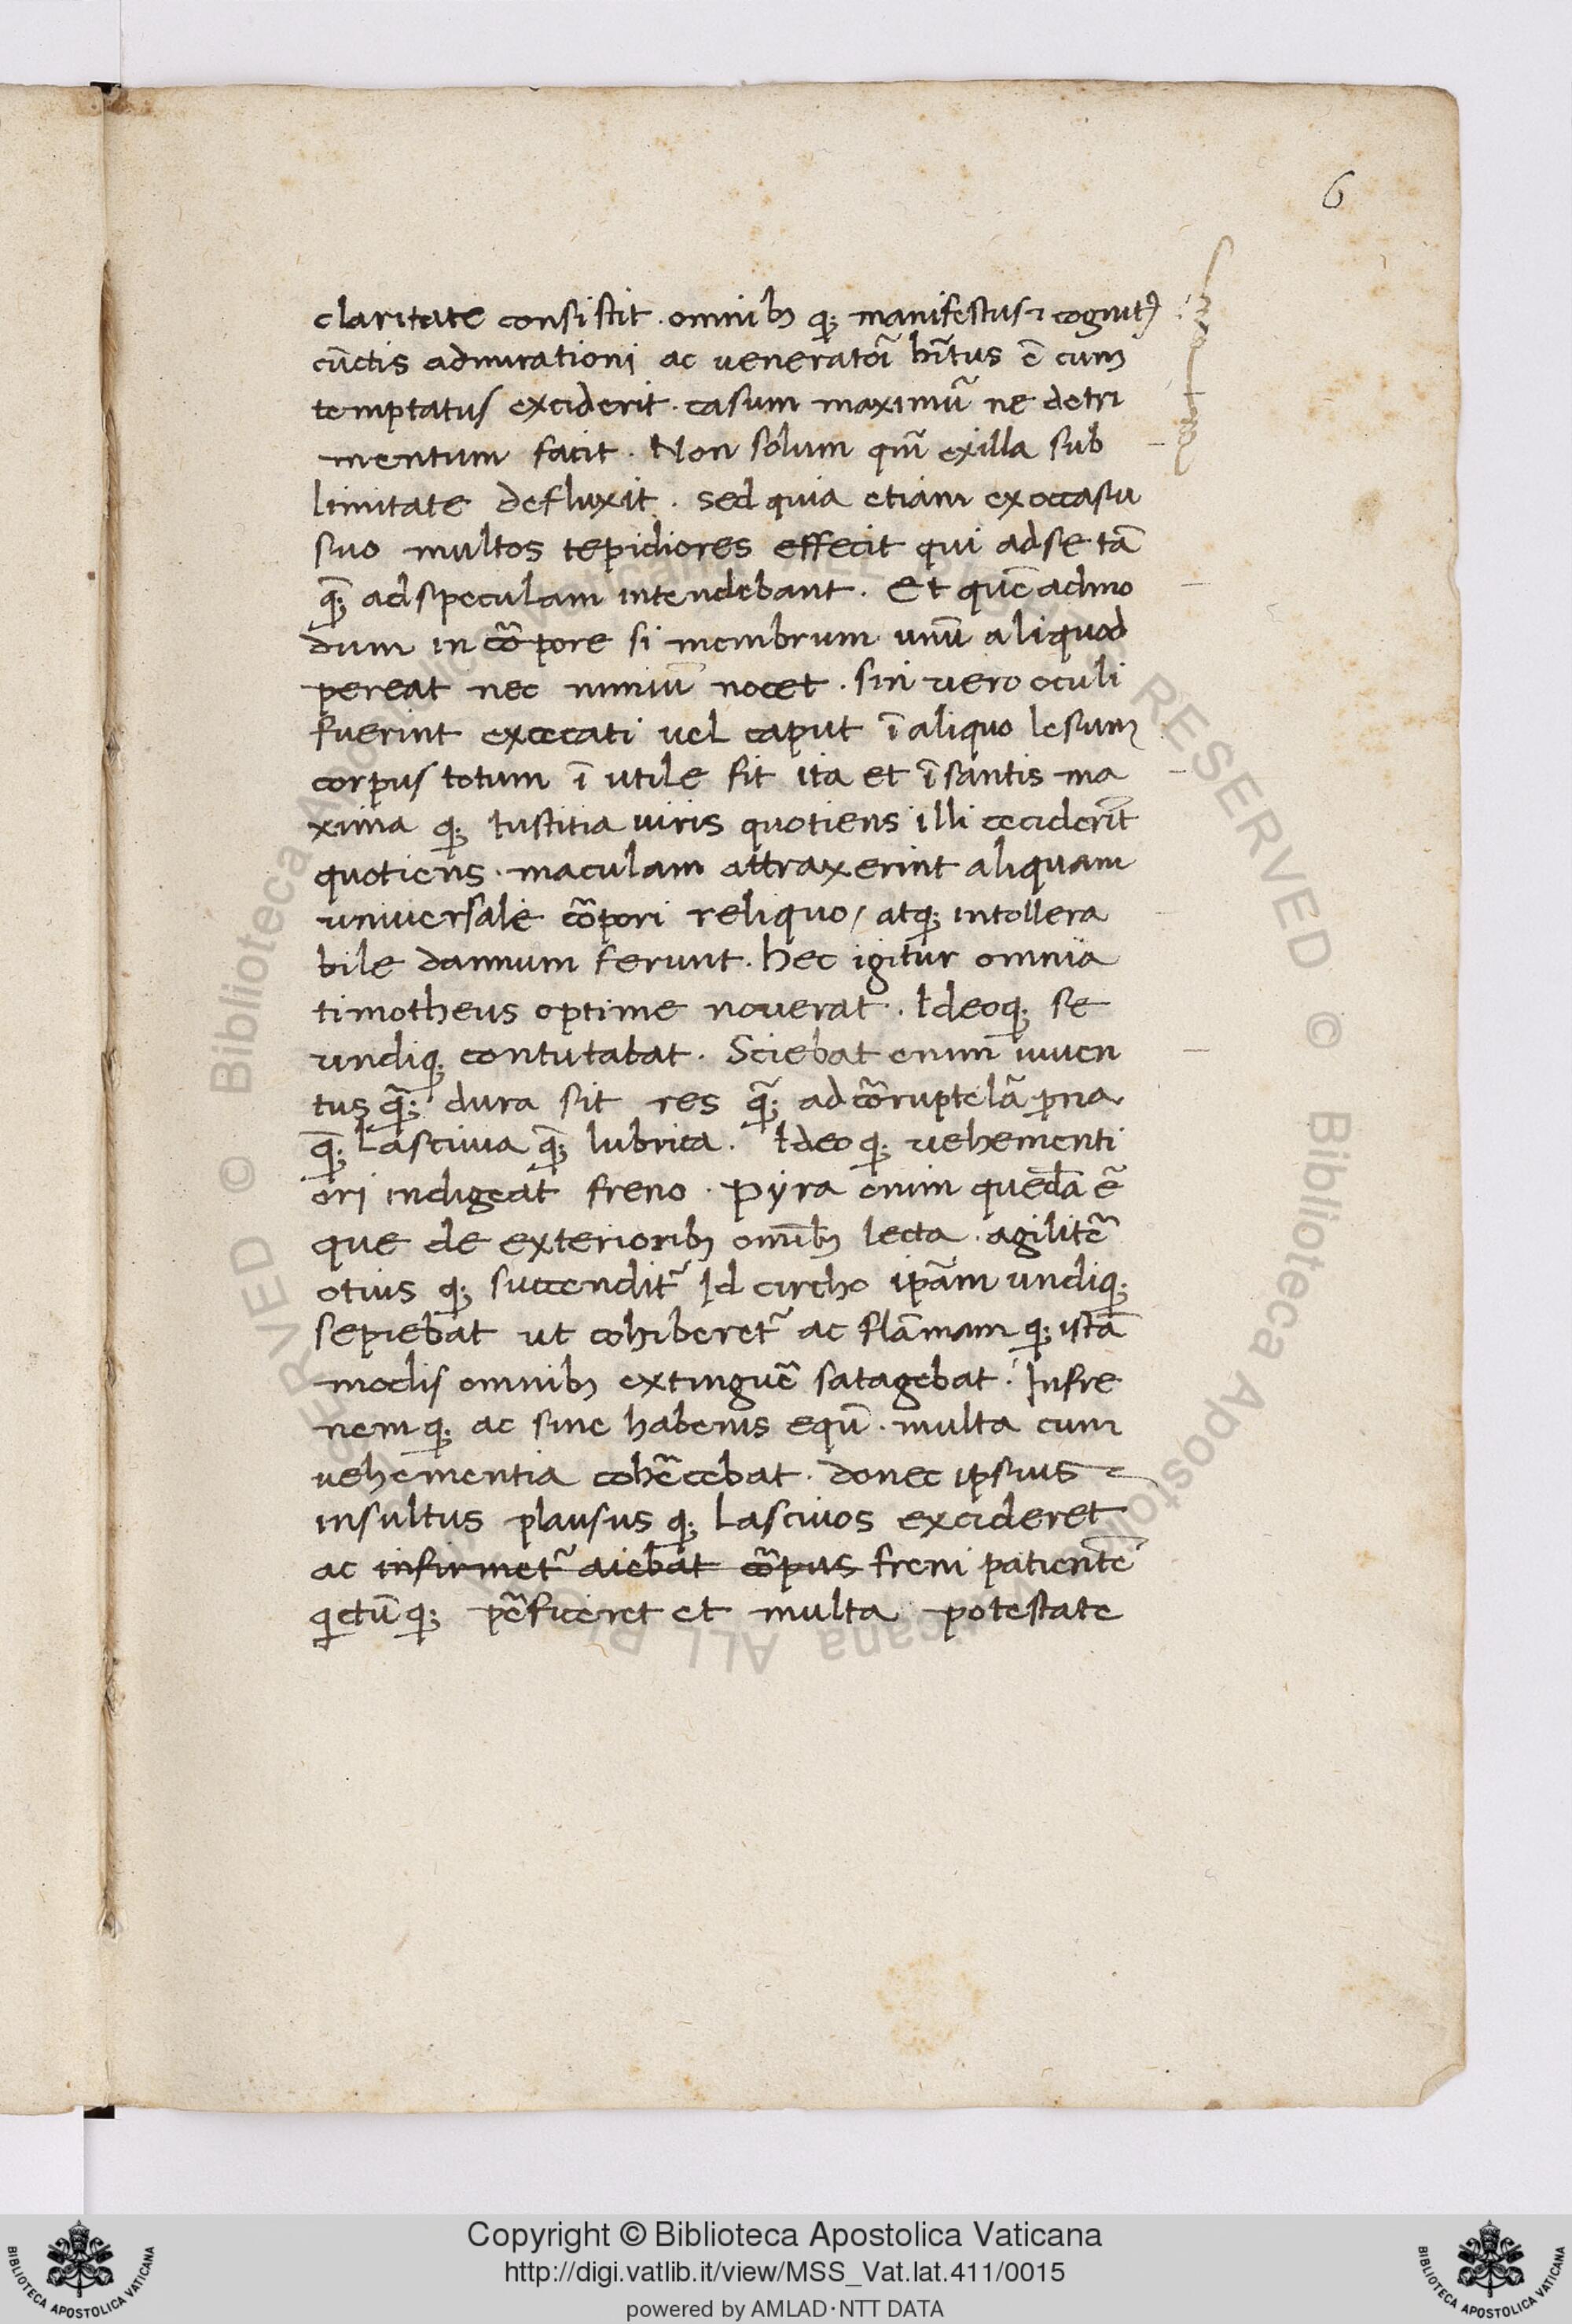 6
claritate consistit · omnibꝫ qꝫ manifestus ⁊ cognitꝰ
cūctis admirationi ac veneratōi hītus ē cum
temptatus exciderit · casum maximū ne detri
mentum facit · Non solum qm̄ ex illa sub
limitate defluxit · sed quia etiam ex occasu
suo multos tepidiores effecit qui ad se tā
q̄ꝫ ad speculam intendebant · Et quēadmo
dum in cōrpore si membrum unū aliquod
pereat nec nimiū nocet · sin vero oculi
fuerint excecati vel caput ī aliquo lesum
corpus totum ī utile fit ita et ī santis ma
xima qꝫ Iustitia viris quotiens illi ceciderīt
quotiens · maculam attraxerint aliquam
universale cōrpori reliquo / atqꝫ intollera
bile damnum ferunt · hec igitur omnia
timotheus optime noverat · Ideoqꝫ se
undiqꝫ contutabat · Sciebat enim iuven
tus q̄ꝫ dura sit res q̄ꝫ ad cōrruptelā ꝓna
q̄ꝫ Lasciva q̄ꝫ lubrica · Ideo qꝫ vehementi
ori indigeat freno · Pyra enim quedā ē
que de exterioribꝫ omībꝫ lecta · agilitē
otius qꝫ succendit᷑ Id circho ipām undiqꝫ
sepiebat ut cohiberet᷑ ac flāmam qꝫ istā
modis omnibꝫ extinguē satagebat · Infre
nem qꝫ ac sine habenis equū · multa cum
vehementia cohēcebat · donec ipsius
insultus plausus qꝫ Lascivos excideret
ac infirmet᷑ aiebat cōrpus freni patientē
qietū qꝫ pēficeret et multa potestate
Copyright © Biblioteca Apostolica Vaticana
http://digi.vatlib.it/view/MSS_Vat.lat.411/0015
powered by AMLAD·NTT DATA